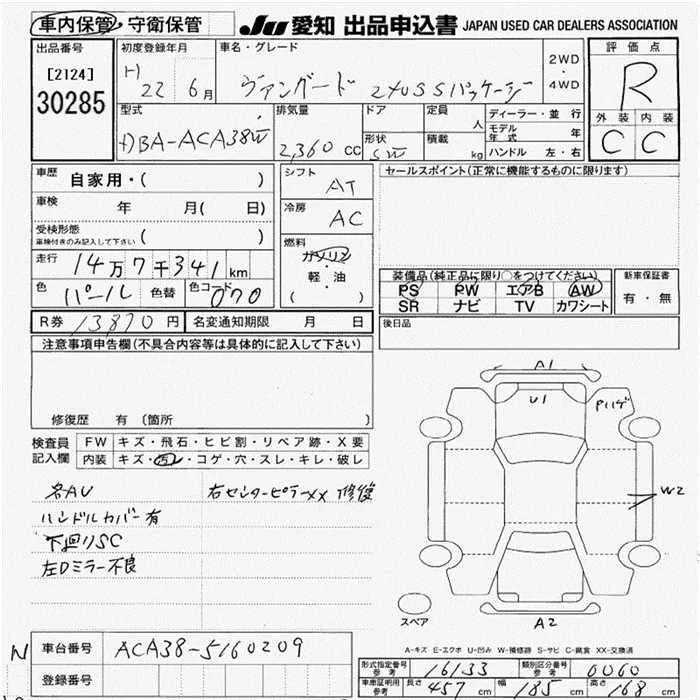 車内保管・守衛保管
JU 愛知 出品申込書 JAPAN USED CAR DEALERS ASSOCIATION
出品番号
[2124]
30285
初度登録年月
H 22 6月
車名・グレード
ヴァンガード 240S Sパッケージ
2WD
・
4WD
評価点
R
外装 内装
C C
型式
DBA-ACA38W
排気量
2,360 cc
ドア
形状
SW
定員
人
積載
kg
ディーラー・並行
モデル年式 年
ハンドル 左・右
車歴
自家用・( )
車検
年 月( 日)
受検形態
車検付きのみ記入して下さい ( )
走行
14万7千341km
色
パール
色替
色コード
070
シフト
AT
冷房
AC
燃料
ガソリン
軽・油
( )
セールスポイント(正常に機能するものに限ります)
装備品(純正品に限り○をつけてください)
PS PW エアB AW
SR ナビ TV カワシート
新車保証書
有・無
R券 13870円
名変通知期限 月 日
後日品
注意事項申告欄(不具合内容等は具体的に記入して下さい)
修復歴 有 (箇所 )
検査員記入欄
FW キズ・飛石・ヒビ割・リペア跡・X要
内装 キズ・汚レ・コゲ・穴・スレ・キレ・破レ
名AU
ハンドルカバー有
下廻りSC
左Dミラー不良
右センターピラーXX 修復
A1
U1
Pハゲ
W2
A2
スペア
A-キズ E-エクボ U-凹み W-補修跡 S-サビ C-腐食 XX-交換済
N
車台番号 ACA38-5160209
登録番号
型式指定番号 参考 16133
類別区分番号 参考 0060
車庫証明用 参考 長さ 457 cm 幅 185 cm 高さ 168 cm